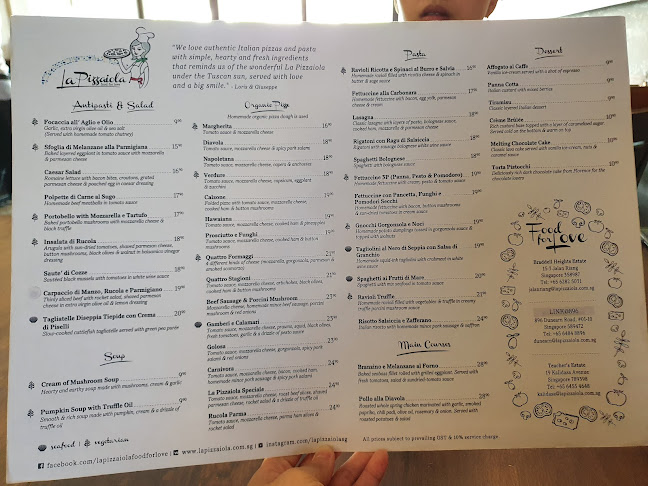 La Pizzaiola
"We love authentic Italian pizzas and pasta
with simple, hearty and fresh ingredients
that reminds us of the wonderful La Pizzaiola
under the Tuscan sun, served with love
and a big smile." - Loris & Giuseppe
Antipasti & Salad
Focaccia all' Aglio e Olio 9⁹⁰
Garlic, extra virgin olive oil & sea salt
(Served with homemade tomato chutney)
Sfoglia di Melanzane alla Parmigiana 15⁹⁰
Baked layered eggplant in tomato sauce with mozzarella
& parmesan cheese
Caesar Salad 16⁹⁰
Romaine lettuce with bacon bites, croutons, grated
parmesan cheese & poached egg in caesar dressing
Polpette di Carne al Sugo 17⁹⁰
Homemade beef meatballs in tomato sauce
Portobello with Mozzarella e Tartufo 17⁹⁰
Baked portobello mushrooms with mozzarella cheese &
black truffle
Insalata di Rucola 18⁹⁰
Arugula with sun-dried tomatoes, shaved parmesan cheese,
button mushrooms, black olives & walnut in balsamic vinegar
dressing
Saute' di Cozze 18⁹⁰
Sautéed black mussels with tomatoes in white wine sauce
Carpaccio di Manzo, Rucola e Parmigiano 19⁹⁰
Thinly sliced beef with rocket salad, shaved parmesan
cheese in extra virgin olive oil & lemon dressing
Tagliatelle Diseppia Tiepide con Crema
di Piselli 20⁹⁰
Slow-cooked cuttlefish tagliatelle served with green pea purée
Soup
Cream of Mushroom Soup 9⁹⁰
Hearty and earthy soup made with mushrooms, cream & garlic
Pumpkin Soup with Truffle Oil 9⁹⁰
Smooth & rich soup made with pumpkin, cream & a drizzle of
truffle oil
seafood | vegetarian
Organic Pizza
Homemade organic pizza dough is used
Margherita 16⁹⁰
Tomato sauce, mozzarella cheese
Diavola 18⁹⁰
Tomato sauce, mozzarella cheese & spicy pork salami
Napoletana 18⁹⁰
Tomato sauce, mozzarella cheese, capers & anchovies
Verdure 18⁹⁰
Tomato sauce, mozzarella cheese, capsicum, eggplant
& zucchini
Caizone
Folded pizza with tomato sauce, mozzarella cheese,
cooked ham & button mushrooms
Hawaiana
Tomato sauce, mozzarella cheese, cooked ham & pineapples
Prosciutto e Funghi
Tomato sauce, mozzarella cheese, cooked ham & button
mushrooms
Quattro Formaggi 21⁹⁰
4 different kinds of cheese (mozzarella, gorgonzola, parmesan &
smoked scamorza)
Quattro Stagioni
Tomato sauce, mozzarella cheese, artichokes, black olives,
cooked ham & button mushrooms
Beef Sausage & Porcini Mushroom
Mozzarella cheese, homemade minced beef sausage, porcini
mushrooms and red onions
Gamberi e Calamari
Tomato sauce, mozzarella cheese, prawns, squid, black olives,
fresh tomatoes, garlic & a drizzle of pesto sauce
Golosa
Tomato sauce, mozzarella cheese, gorgonzola, spicy pork
salami & red onions
Carnivora 24⁹⁰
Tomato sauce, mozzarella cheese, bacon, cooked ham,
homemade minced pork sausage & spicy pork salami
La Pizzaiola Speciale 24⁹⁰
Tomato sauce, mozzarella cheese, roast beef slices, shaved
parmesan cheese, rocket salad & a drizzle of truffle oil
Rucola Parma 24⁹⁰
Tomato sauce, mozzarella cheese, parma ham slices &
rocket salad
Pasta
Ravioli Ricotta e Spinaci al Burro e Salvia 16⁹⁰
Homemade ravioli filled with ricotta cheese & spinach in
butter & sage sauce
Fettuccine alla Carbonara 17⁹⁰
Homemade fettuccine with bacon, egg yolk, parmesan
cheese & cream
Lasagna
Classic lasagna with layers of pasta, bolognese sauce,
cooked ham, mozzarella & parmesan cheese
Rigatoni con Ragu di Salsiccia
Rigatoni with sausage bolognese white wine sauce
Spaghetti Bolognese
Spaghetti with bolognese sauce
Fettuccine 3P (Panna, Pesto & Pomodoro)
Homemade fettuccine with cream, pesto & tomato sauce
Fettuccine con Pancetta, Funghi e
Pomodori Secchi
Homemade fettuccine with bacon, button mushrooms
& sun-dried tomatoes in cream sauce
Gnocchi Gorgonzola e Noci
Homemade potato dumplings tossed in gorgonzola sauce &
topped with walnuts
Tagliolini al Nero di Seppia con Salsa di
Granchio 19⁹⁰
Homemade squid-ink tagliolini with crabmeat in white
wine sauce
Spaghetti ai Frutti di Mare 20⁹⁰
Spaghetti with mix seafood in tomato sauce
Ravioli Truffle 21⁹⁰
Homemade ravioli filled with vegetables & truffle in creamy
truffle porcini mushroom sauce
Risotto Salsiccia e Zafferano 24⁹⁰
Italian risotto with homemade mince pork sausage & saffron
Main Courses
Branzino e Melanzane al Forno 28⁹⁰
Baked seabass fillet rolled with grilled eggplant. Served with
fresh tomatoes, salad & sundried-tomato sauce
Pollo alla Diavola 28⁹⁰
Roasted whole spring chicken marinated with garlic, smoked
paprika, chili padi, olive oil, rosemary & onion. Served with
roasted potatoes & salad
Dessert
Affogato al Caffe 9⁹⁰
Vanilla ice-cream served with a shot of espresso
Panna Cotta 9⁹⁰
Italian custard with mixed berries
Tiramisu 9⁹⁰
Classic layered Italian dessert
Crème Brûlée 9⁹⁰
Rich custard base topped with a layer of caramelized sugar.
Served cold on the bottom & warm on top
Melting Chocolate Cake
Classic lava cake served with vanilla ice cream, nuts &
caramel sauce
Torta Pistocchi
Deliciously rich dark chocolate cake from Florence for the
chocolate lovers
Food
for Love
Braddell Heights Estate
Jalan Riang
Singapore 358987
Tel: +65 6282 5051
jalanriang@lapizzaiola.com.sg
LINK@896
896 Dunearn Road, #01-10
Singapore 589472
dunearn@lapizzaiola.com.sg
Teacher's Estate
19 Kalidasa Avenue
Singapore 789398
Tel: +65 6455 4688
kalidasa@lapizzaiola.com.sg
facebook.com/lapizzaiolafoodforlove | www.lapizzaiola.com.sg | instagram.com/lapizzaiolasg
All prices subject to prevailing GST & 10% service charge